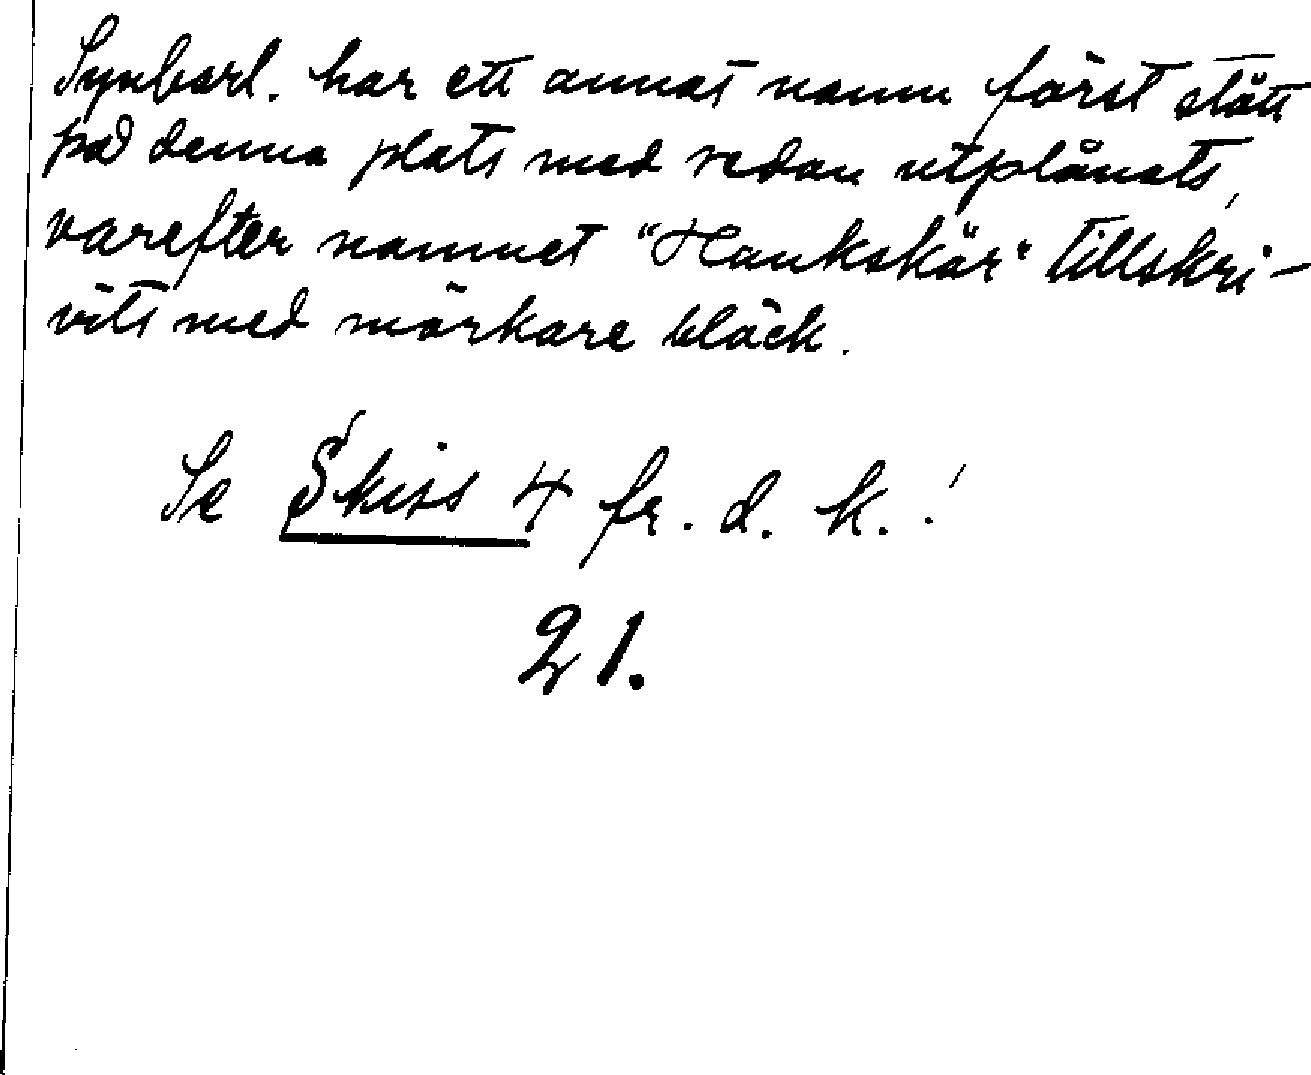 Synbarl. har ett annat namn först stått
på denna plats med sedan utplånats,
varefter namnet "Haukskär" tillskri-
vits med mörkare bläck.
Se Skiss 4 fr. d. k.!
21.